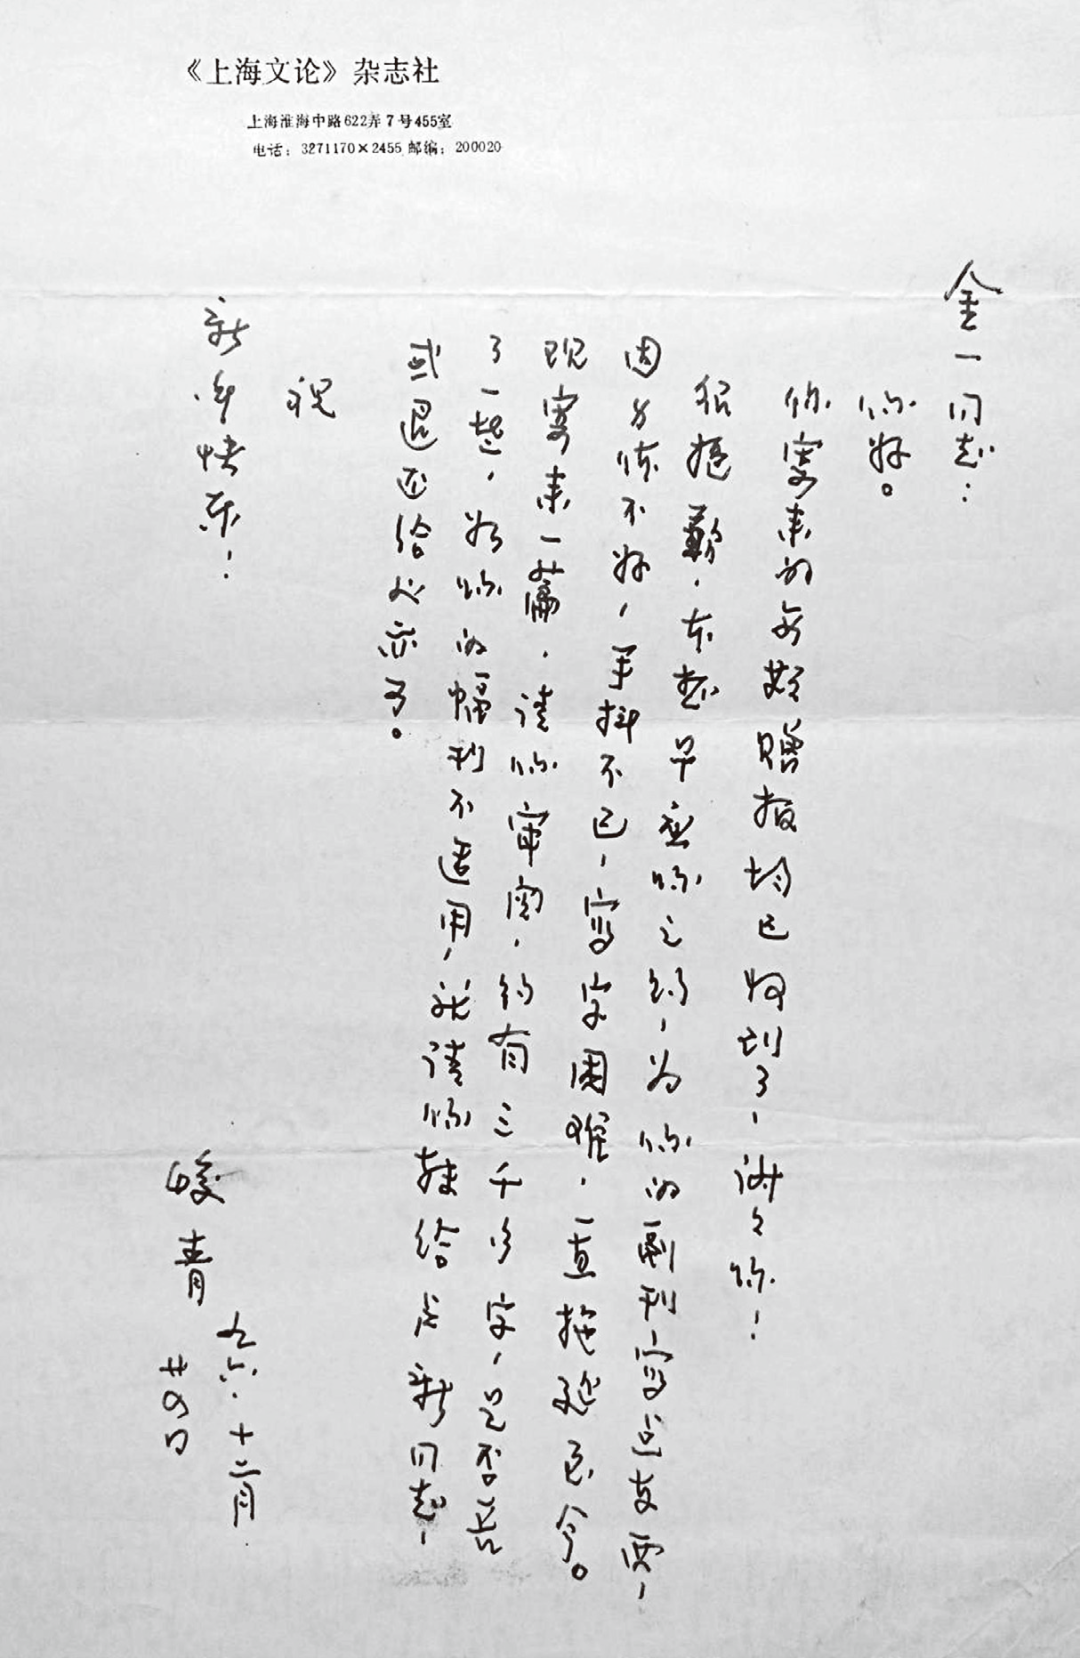 《上海文论》杂志社
上海淮海中路622弄7号455室
电话：3271170×2455 邮编：200020
金一同志：
你好。
你寄来的每期赠报均已收到了，谢々你！
很抱歉，本想早应你之约，为你的副刊写点东西，
因身体不好，手抖不已，写字困难，一直拖延已今。
现寄来一篇，请你审阅，约有三千多字，是否长
了一些，如你的幅刊不适用，就请你转给卢新同志，
或退还给人亦可。
祝
新年快乐！
峻青
九六.十二月
廿四日